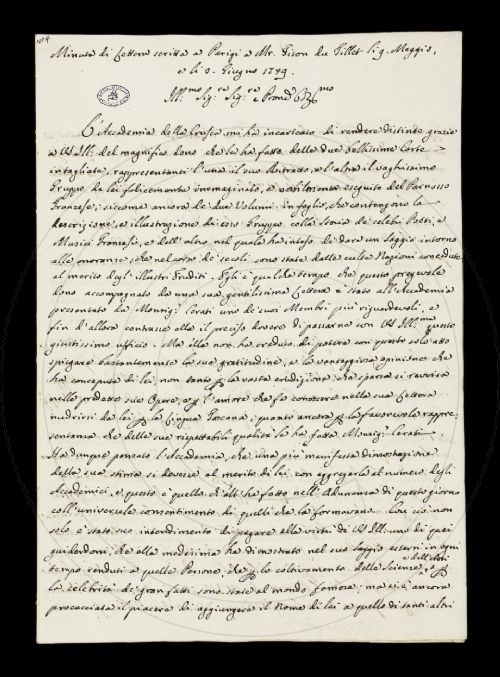 N.º 4
Minuta di Lettera scritta a Parigi a Mr. Titon du Tillet li 9. Maggio,
e li 2. Giugno 1749.
Ill.mo Sig.re Sig.re e Pron.e
L'Accademia della Crusca mi ha incaricato di rendere distinte grazie
a VS Ill. del magnifico dono che le ha fatto delle due bellissime Carte
intagliate, rappresentanti l'una il suo Ritratto, e l'altra il vaghissimo
Gruppo da lei felicemente immaginato, e eseguito del Parnasso
Francese; siccome ancora de' due Volumi in foglio, che contengono la
descrizione, e illustrazione di esso Gruppo colla Storia de' celebri Poeti, e
Musici Francesi, e dell'altro nel quale ha inteso di dare un Saggio intorno
alle onoranze, che nel corso de' secoli sono state dalle culte Nazioni concedute
al merito degl'illustri Eruditi. Egli è qualche tempo che questo pregevole
dono accompagnato da una sua gentilissima Lettera è stato all'Accademia
presentato da Monsig. Cerati uno de' suoi Membri più riguardevoli, e
fin d'allora contrasse ella il preciso dovere di passarne con VS Ill.ma questo
giustissimo ufficio. Ma ella non ha creduto di potere con questo solo atto
spiegare bastantemente la sua gratitudine, e la vantaggiosa opinione che
ha conceputa di lei, non tanto p la vasta erudizione, che sparsa si ravvisa
nelle predette sue Opere, e p l'amore che fa conoscere nella sua Lettera
nudrirsi da lei p la Lingua Toscana, quanto ancora p la favorevole rappre-
sentanza che delle sue rispettabili qualità le ha fatta Monsig. Cerati.
Ha dunque pensato l'Accademia, che una più manifesta dimostrazione
della sua stima si dovesse al merito di lei con aggregarla al numero degli
Accademici, e questo è quello che all' ha fatto nell'Adunanza di questo giorno
coll'universale consentimento di quelli che la formavano. Con ciò non
solo è stato suo intendimento di pregare alla virtù di VS Ill. uno di quei
guiderdoni, che ella medesima ha dimostrato nel suo Saggio essersi in ogni
tempo renduti a quelle Persone, che p lo coltivamento delle Scienze, e dell'Arti p
la celebrità de' gran fatti sono state al mondo famose; ma si è ancora
procacciata il piacere di aggiungere il Nome di lei a quello di tanti altri